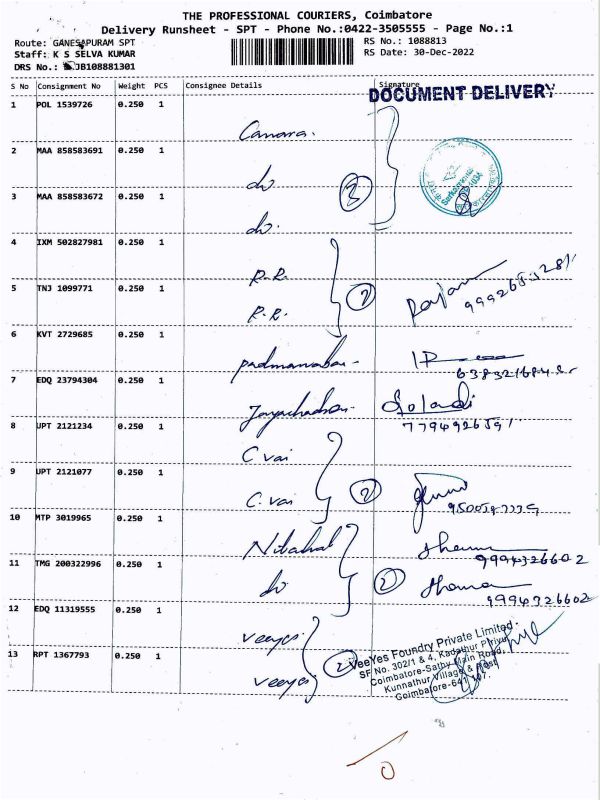 THE PROFESSIONAL COURIERS, Coimbatore
Delivery Runsheet - SPT - Phone No.:0422-3505555 - Page No.:1
Route: GANESAPURAM SPT
RS No.: 1088813
Staff: K S SELVA KUMAR
RS Date: 30-Dec-2022
DRS No.: JB108881301
S No Consignment No Weight PCS Consignee Details Signature
DOCUMENT DELIVERY
1 POL 1539726 0.250 1
Canara.
2 MAA 858583691 0.250 1
do
3
3 MAA 858583672 0.250 1
do.
4 IXM 502827981 0.250 1
R.R.
5 TNJ 1099771 0.250 1
R.R.
2
6 KVT 2729685 0.250 1
7 EDQ 23794304 0.250 1
8 UPT 2121234 0.250 1
C vai
9 UPT 2121077 0.250 1
C. vai
2
10 MTP 3019965 0.250 1
11 TMG 200322996 0.250 1
9994326602
do
2
12 EDQ 11319555 0.250 1
9994326602
veeyes
13 RPT 1367793 0.250 1
veeyes
2
VeeYes Foundry Private Limited.
SF No. 302/1 & 4, Kadathur Pirivu,
Coimbatore-Sathy Main Road,
Kunnathur Village & Post
Coimbatore-641 107.